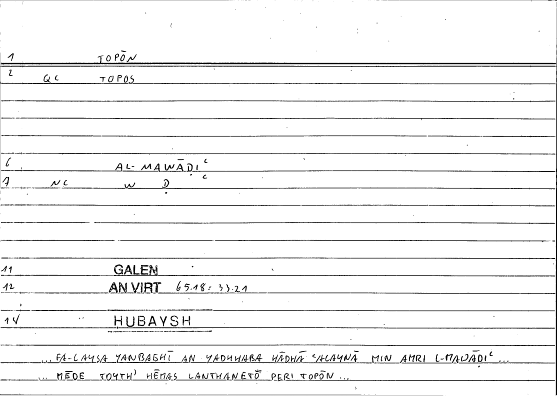 1 TOPŌN
2 QC TOPOS
6 AL-MAWĀḌIʿ
7 NC W Ḍ ʿ
11 GALEN
12 AN VIRT 65.18 : 33.21
14 ḤUBAYSH
...FA-LAYSA YANBAGHĪ AN YADHHABA HĀDHĀ ʿALAYNĀ MIN AMRI L-MAWĀḌIʿ...
... MĒDE TOUTH' HĒMAS LANTHANETŌ PERI TOPŌN ...